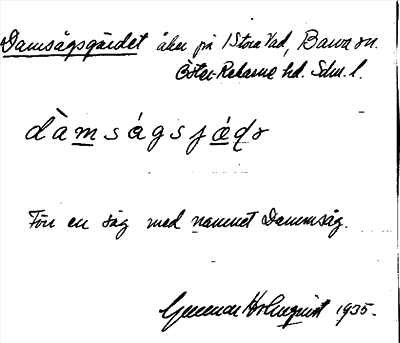 Damsågsgärdet åker på 1 Stora Vad, Barva sn.
Öster-Rekarne hd. Sdm. l.
dàmságsjǽḍo
Förr en såg med namnet Dammsåg.
Gunnar Holmquist 1935.